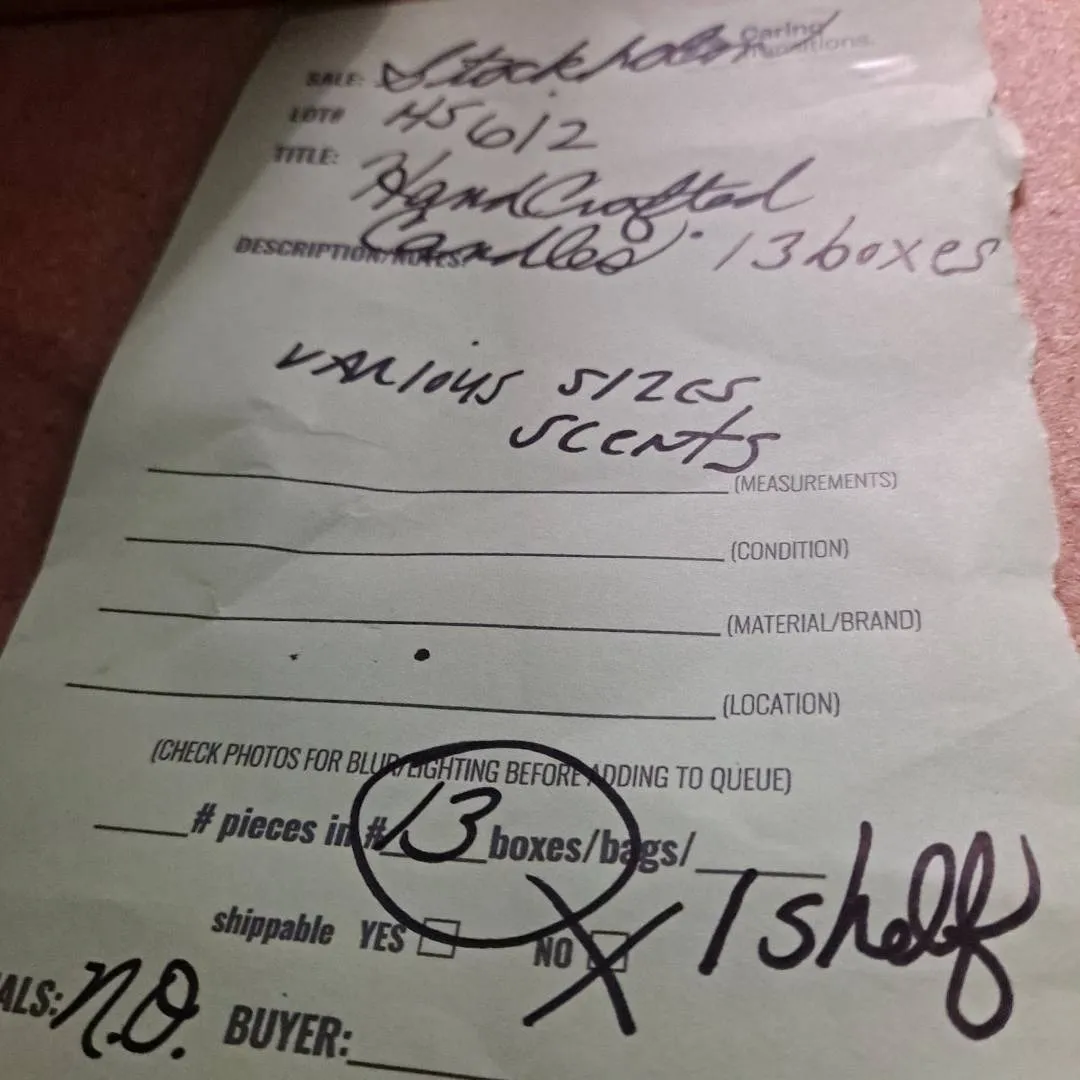 Caring
Transitions.
SALE: Stockholm
LOT# HS612
TITLE: HandCrafted
Candles 13 boxes
DESCRIPTION/NOTES:
VARIOUS SIZES
SCENTS
(MEASUREMENTS)
(CONDITION)
(MATERIAL/BRAND)
(LOCATION)
(CHECK PHOTOS FOR BLUR/LIGHTING BEFORE ADDING TO QUEUE)
# pieces in # 13 boxes/bags/
1 shelf
shippable YES NO X
ALS: N.O. BUYER: